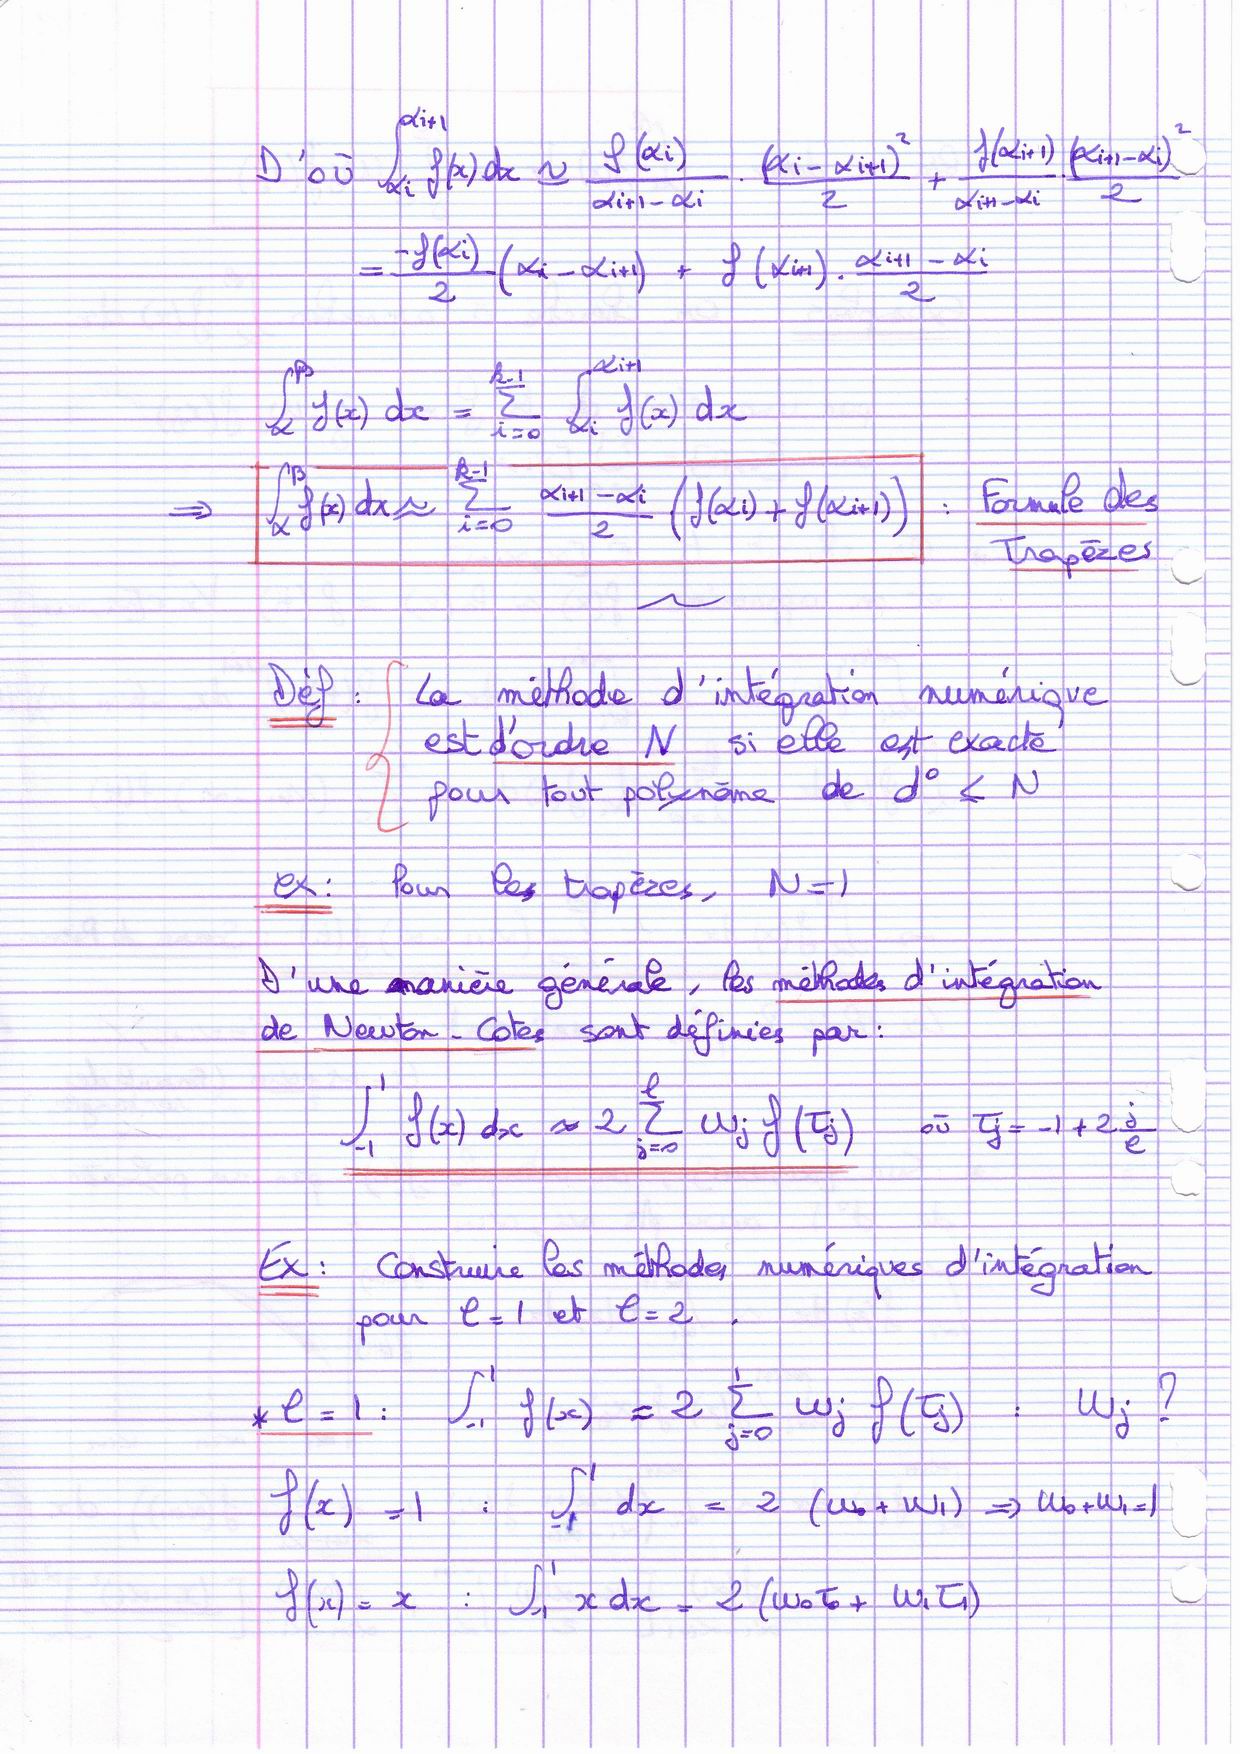 D'où ∫_{αi}^{αi+1} f(x) dx ≃ f(αi)/(αi+1 − αi) · (αi − αi+1)²/2 + f(αi+1)/(αi+1 − αi) (αi+1 − αi)²/2
= −f(αi)/2 (αi − αi+1) + f(αi+1) · (αi+1 − αi)/2
∫_α^β f(x) dx = Σ_{i=0}^{k-1} ∫_{αi}^{αi+1} f(x) dx
⇒ ∫_α^β f(x) dx ≈ Σ_{i=0}^{k-1} (αi+1 − αi)/2 (f(αi) + f(αi+1)) : Formule des
Trapèzes
Déf : La méthode d'intégration numérique
est d'ordre N si elle est exacte
pour tout polynôme de d° ≤ N
ex : Pour les trapèzes, N = 1
D'une manière générale, les méthodes d'intégration
de Newton-Cotes sont définies par :
∫_{-1}^{1} f(x) dx ≈ 2 Σ_{j=0}^{l} ωj f(τj) où τj = −1 + 2 j/l
Ex : Construire les méthodes numériques d'intégration
pour l = 1 et l = 2 .
* l = 1 : ∫_{-1}^{1} f(x) = 2 Σ_{j=0}^{1} ωj f(τj) : ωj ?
f(x) = 1 : ∫_{-1}^{1} dx = 2 (ω0 + ω1) ⇒ ω0 + ω1 = 1
f(x) = x : ∫_{-1}^{1} x dx = 2 (ω0 τ0 + ω1 τ1)